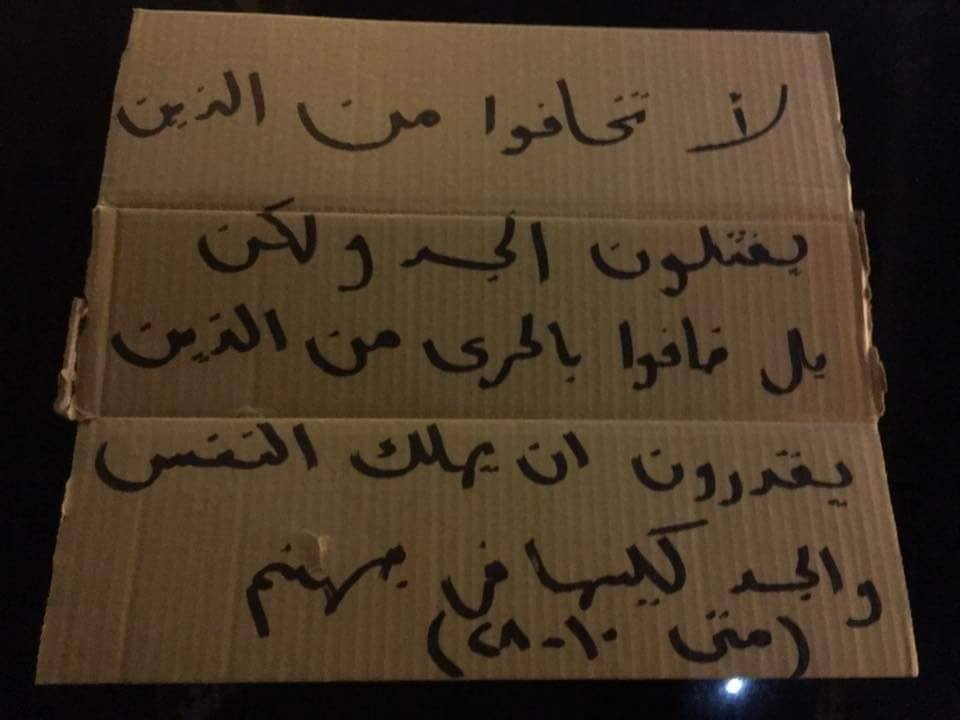 لأ تخافوا من الذين
يقتلون الجسد ولكن
بل خافوا بالحرى من الذين
يقدرون ان يهلك النفس
والجسد كليهما فى جهنم
(متى ١٠-٢٨)